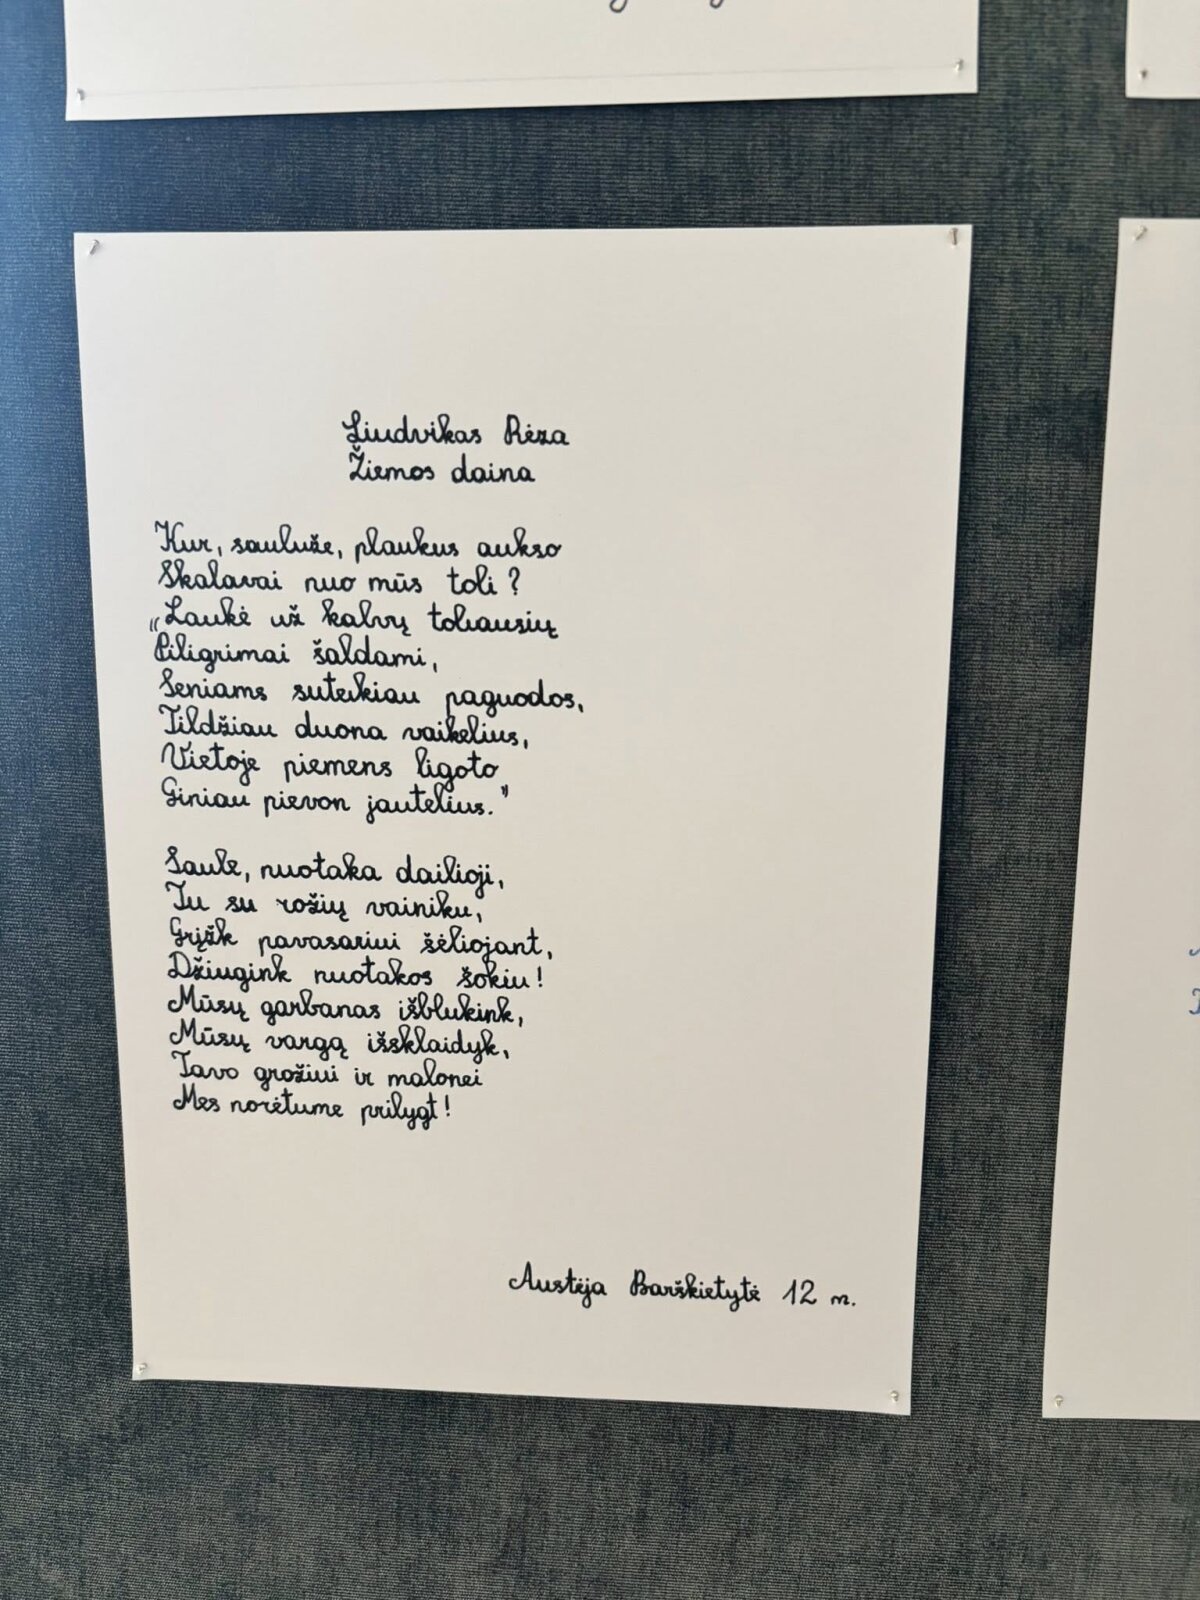 Liudvikas Rėza
Žiemos daina
Kur, saulužė, plaukus aukso
Skalavai nuo mūs toli?
„Laukė už kalvų toliausių
Piligrimai šaldami,
Seniams suteikiau paguodos,
Tildžiau duona vaikelius,
Vietoje piemens ligoto
Giniau pievon jautelius."
Saule, nuotaka dailioji,
Tu su rožių vainiku,
Grįžk pavasariui šėliojant,
Džiugink nuotakos šokiu!
Mūsų garbanas išblukink,
Mūsų vargą išsklaidyk,
Tavo grožiui ir malonei
Mes norėtume prilygt!
Austėja Barškietytė 12 m.